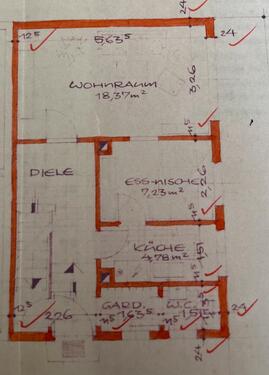 24
12⁵
5,63⁵
24
WOHNRAUM
18,37m²
3,26
11⁵
DIELE
ESS-NISCHE
7,23m²
2,26
11⁵
KÜCHE
4,78m²
1,51
11⁵
GARD.
W.C.
12⁵
2,26
11⁵
1,63⁵
11⁵
1,51
24
24